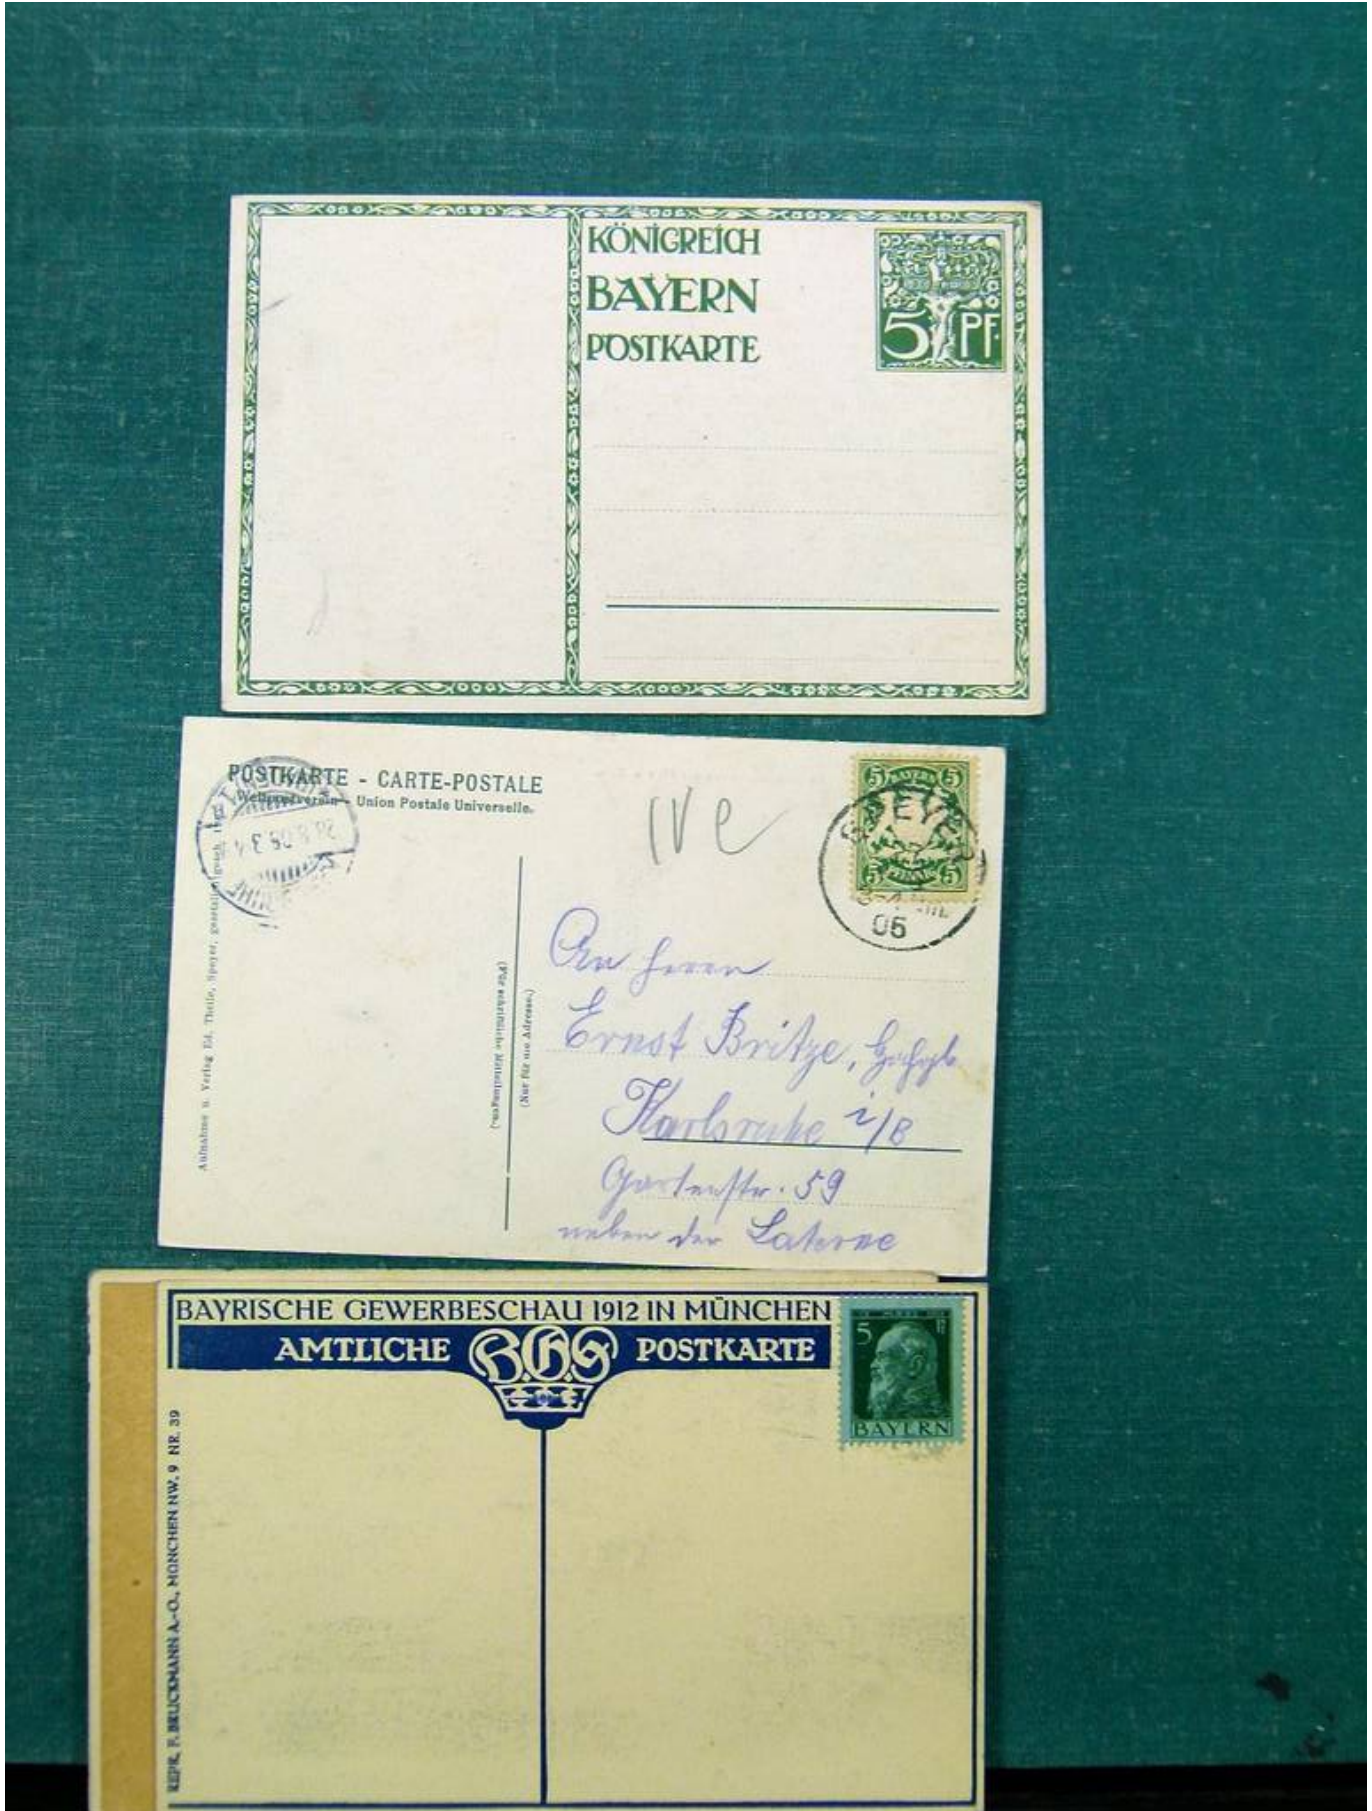 KÖNIGREICH
BAYERN
POSTKARTE
5 PF.
POSTKARTE - CARTE-POSTALE
Weltpostverein - Union Postale Universelle.
5 BAYERN 5
5 PFENNIG 5
SPEYER
06
IVe
Aufnahme u. Verlag Ed. Theile, Speyer, gesetzlich
(Für schriftliche Mitteilungen.)
(Nur für die Adresse.)
An Herrn
Ernst Britze,
Karlsruhe i/B
Gartenstr. 59
neben der Laterne
BAYRISCHE GEWERBESCHAU 1912 IN MÜNCHEN
AMTLICHE B.G.S POSTKARTE
5 Pf
BAYERN
REPR. F. BRUCKMANN A.-G., MÜNCHEN NW. 9 NR. 39